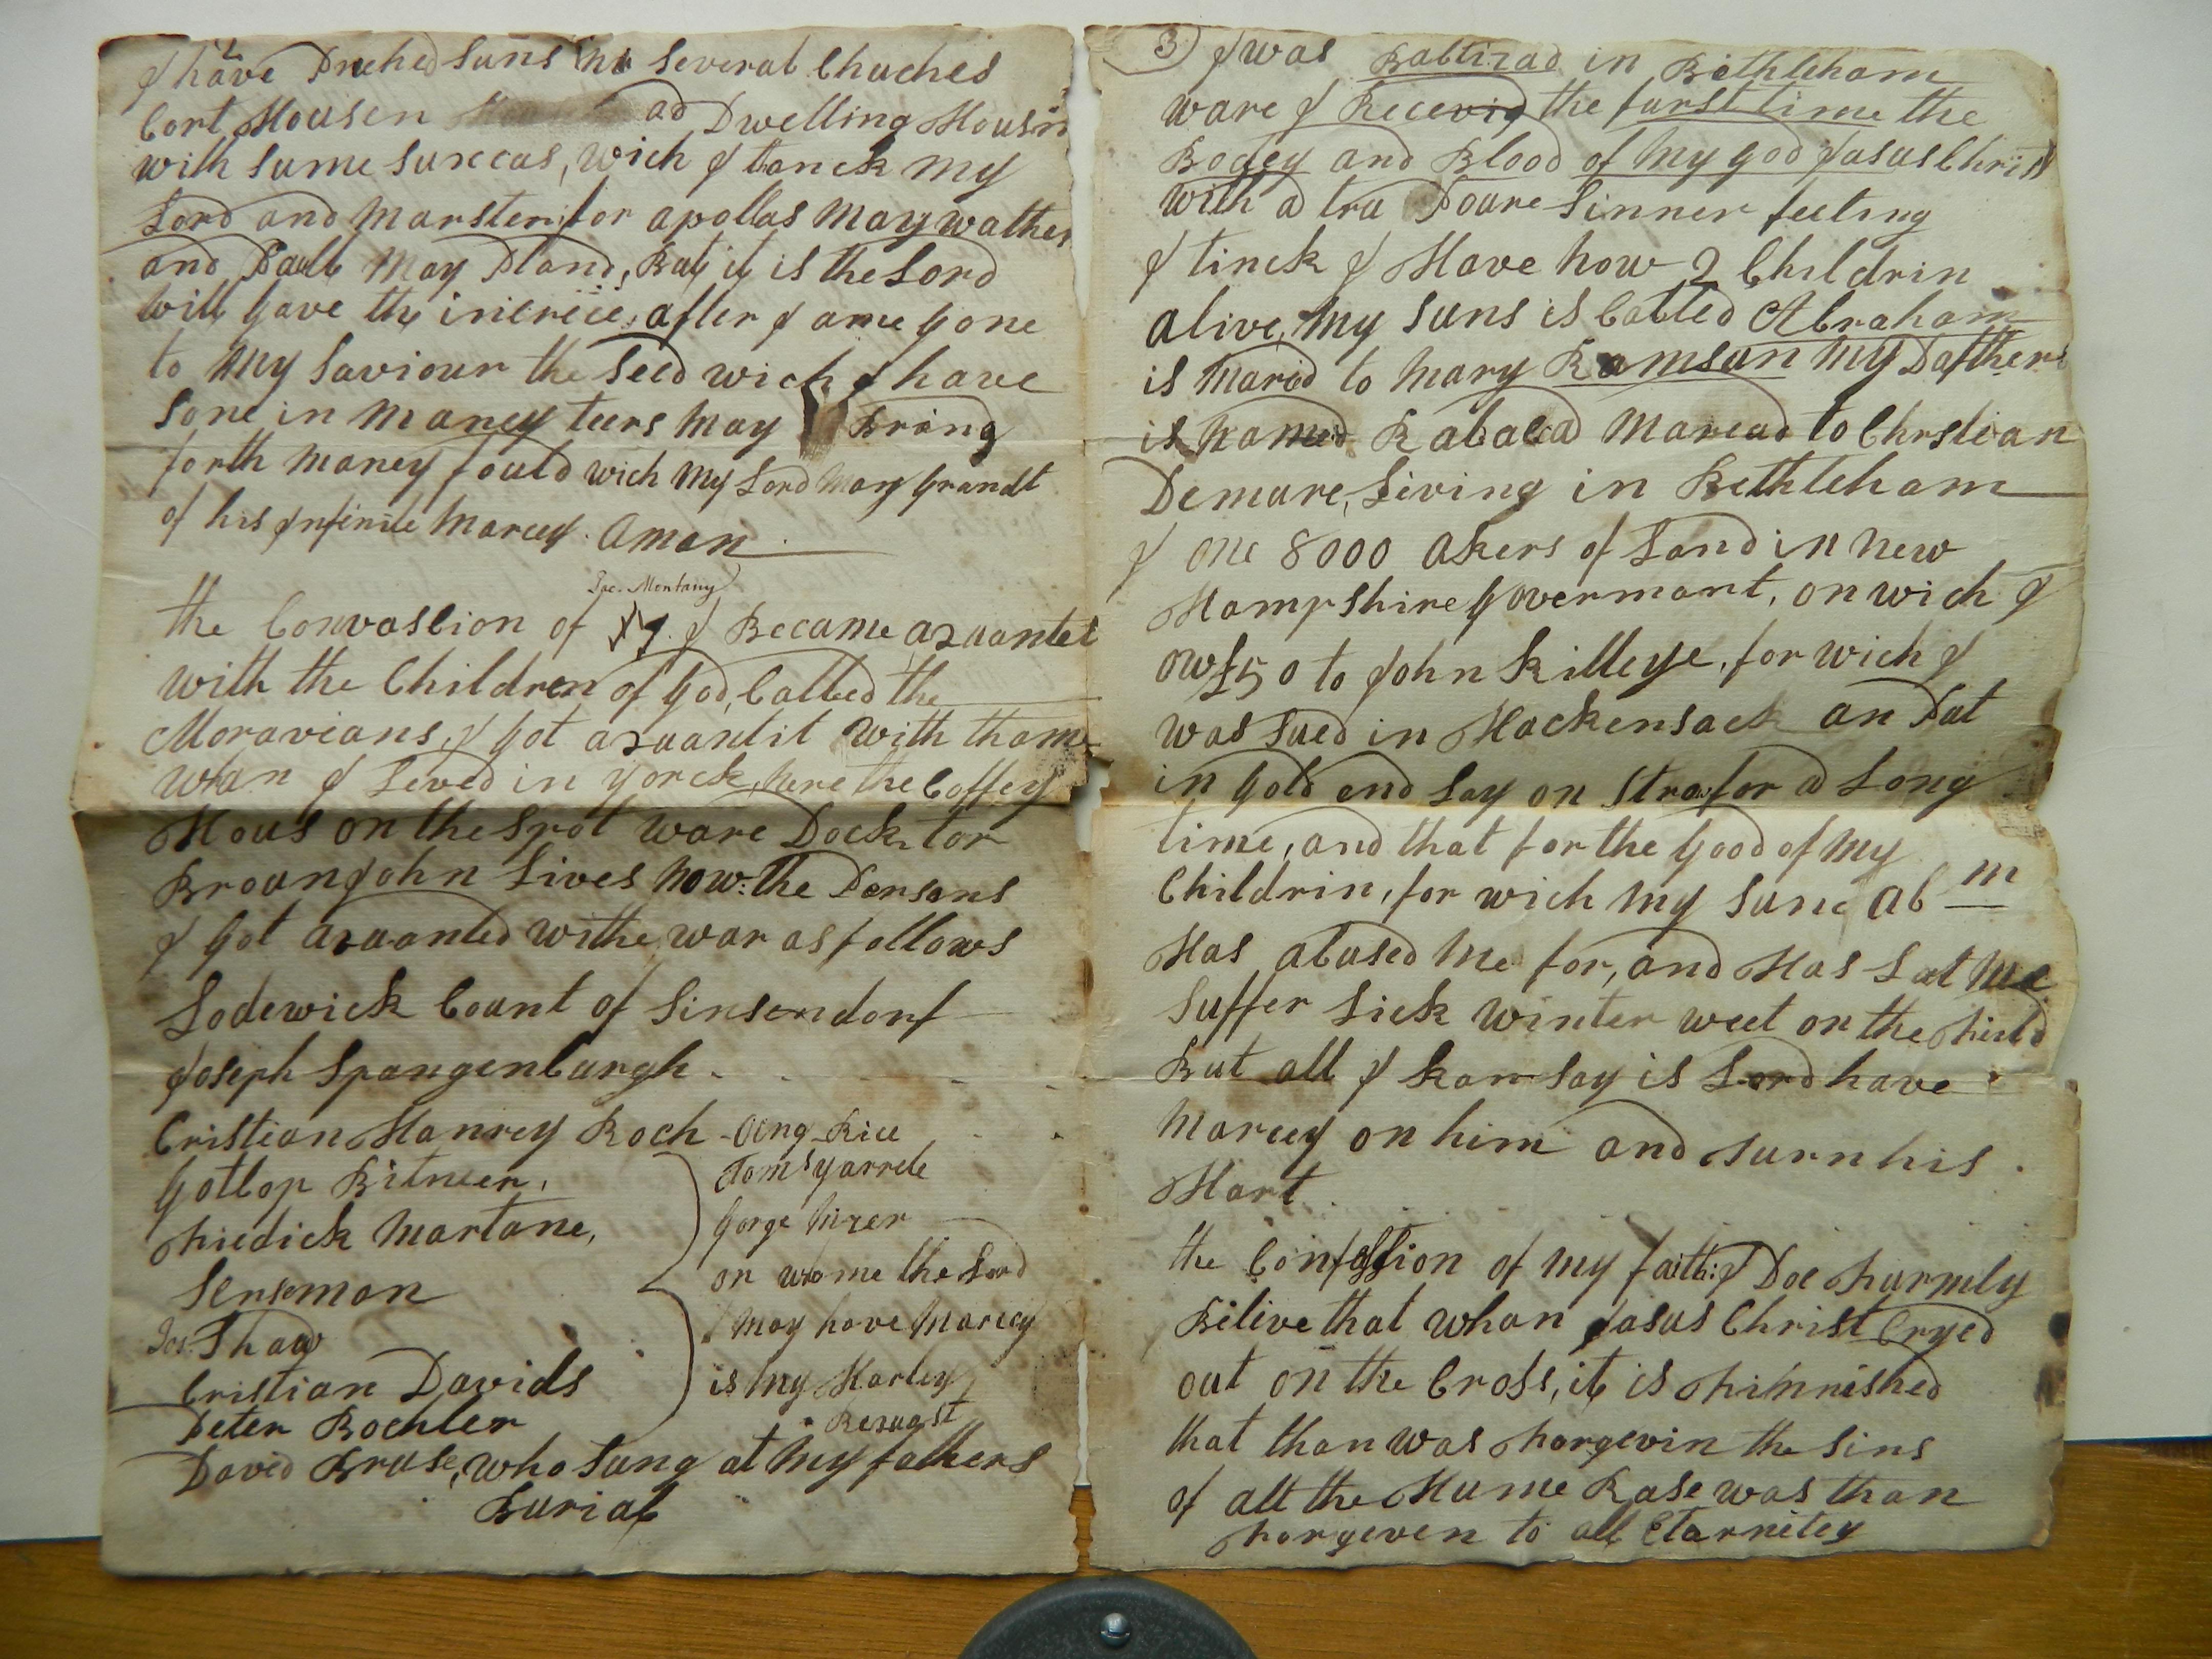 2
I have Preched suns in several Chuches
Cort Housen ad Dwelling Housin
with sume sunccas, wich I tanck my
Lord and Marster for apollas may wather
and Paull may Pland, But it is the Lord
will gave the increiee, after I ame gone
to my Saviour the Seed wich I have
sone in maney teers may Bring
forth maney fould wich my Lord may grandt
of his Infinite marcey. aman
Jac. Montany
the Convastion of I Became azuantet
with the Children of God, Called the
Moravians, I got azuantit with tham
whan I Lived in yorck, here the Coffey
Hous on the Spot ware Docktor
Brounjohn Lives now: the Persons
I got azuanted withe, war as follows
Lodewick Count of Sinsendorf
Joseph Spangenburgh
Cristian Hanrey Roch - Oeng Rice
Gotlop Bitneer, Jams yarrele
Friedick Martane, Gorge Nizer
Sensemon on whome the Lord
Jos. Shaw may have Marcey
Cristian Davids is my Hartey
Peter Boehler Rezugst
David Bruse, who sung at my fathers
Burial
3) I was Babtizad in Bethleham
ware I Recevid the furst time the
Bodey and Blood of my god Jasus Christ
with a tru Poure Sinner feeling
I tinck I Have now 2 Childrin
alive, my suns is Called Abraham
is Marad to Mary Ramsan my Dafther
is Named Rabaca Maread to Chrstian
Demure, Living in Bethleham
I one 8000 akers of Land in new
Hampshire Govermant, on wich I
ow £50 to John Killeye, for wich I
was sued in Hackensack an Put
in Gold and Lay on straw for a Long
time, and that for the Good of my
Childrin, for wich my sune Abm
Has abused me for, and Has Lat me
suffer sick winter weet on the Fiuld
But all I kan say is Lord have
marcey on him and turn his
Hart
the Confession of my faith: I Doe Furmly
Belive that whan Jasus Christ Cryed
out on the Cross, it is Fihnnished
that than was Forgevin the Sins
of all the Hume Rase was than
Forgeven to all Etarnitey